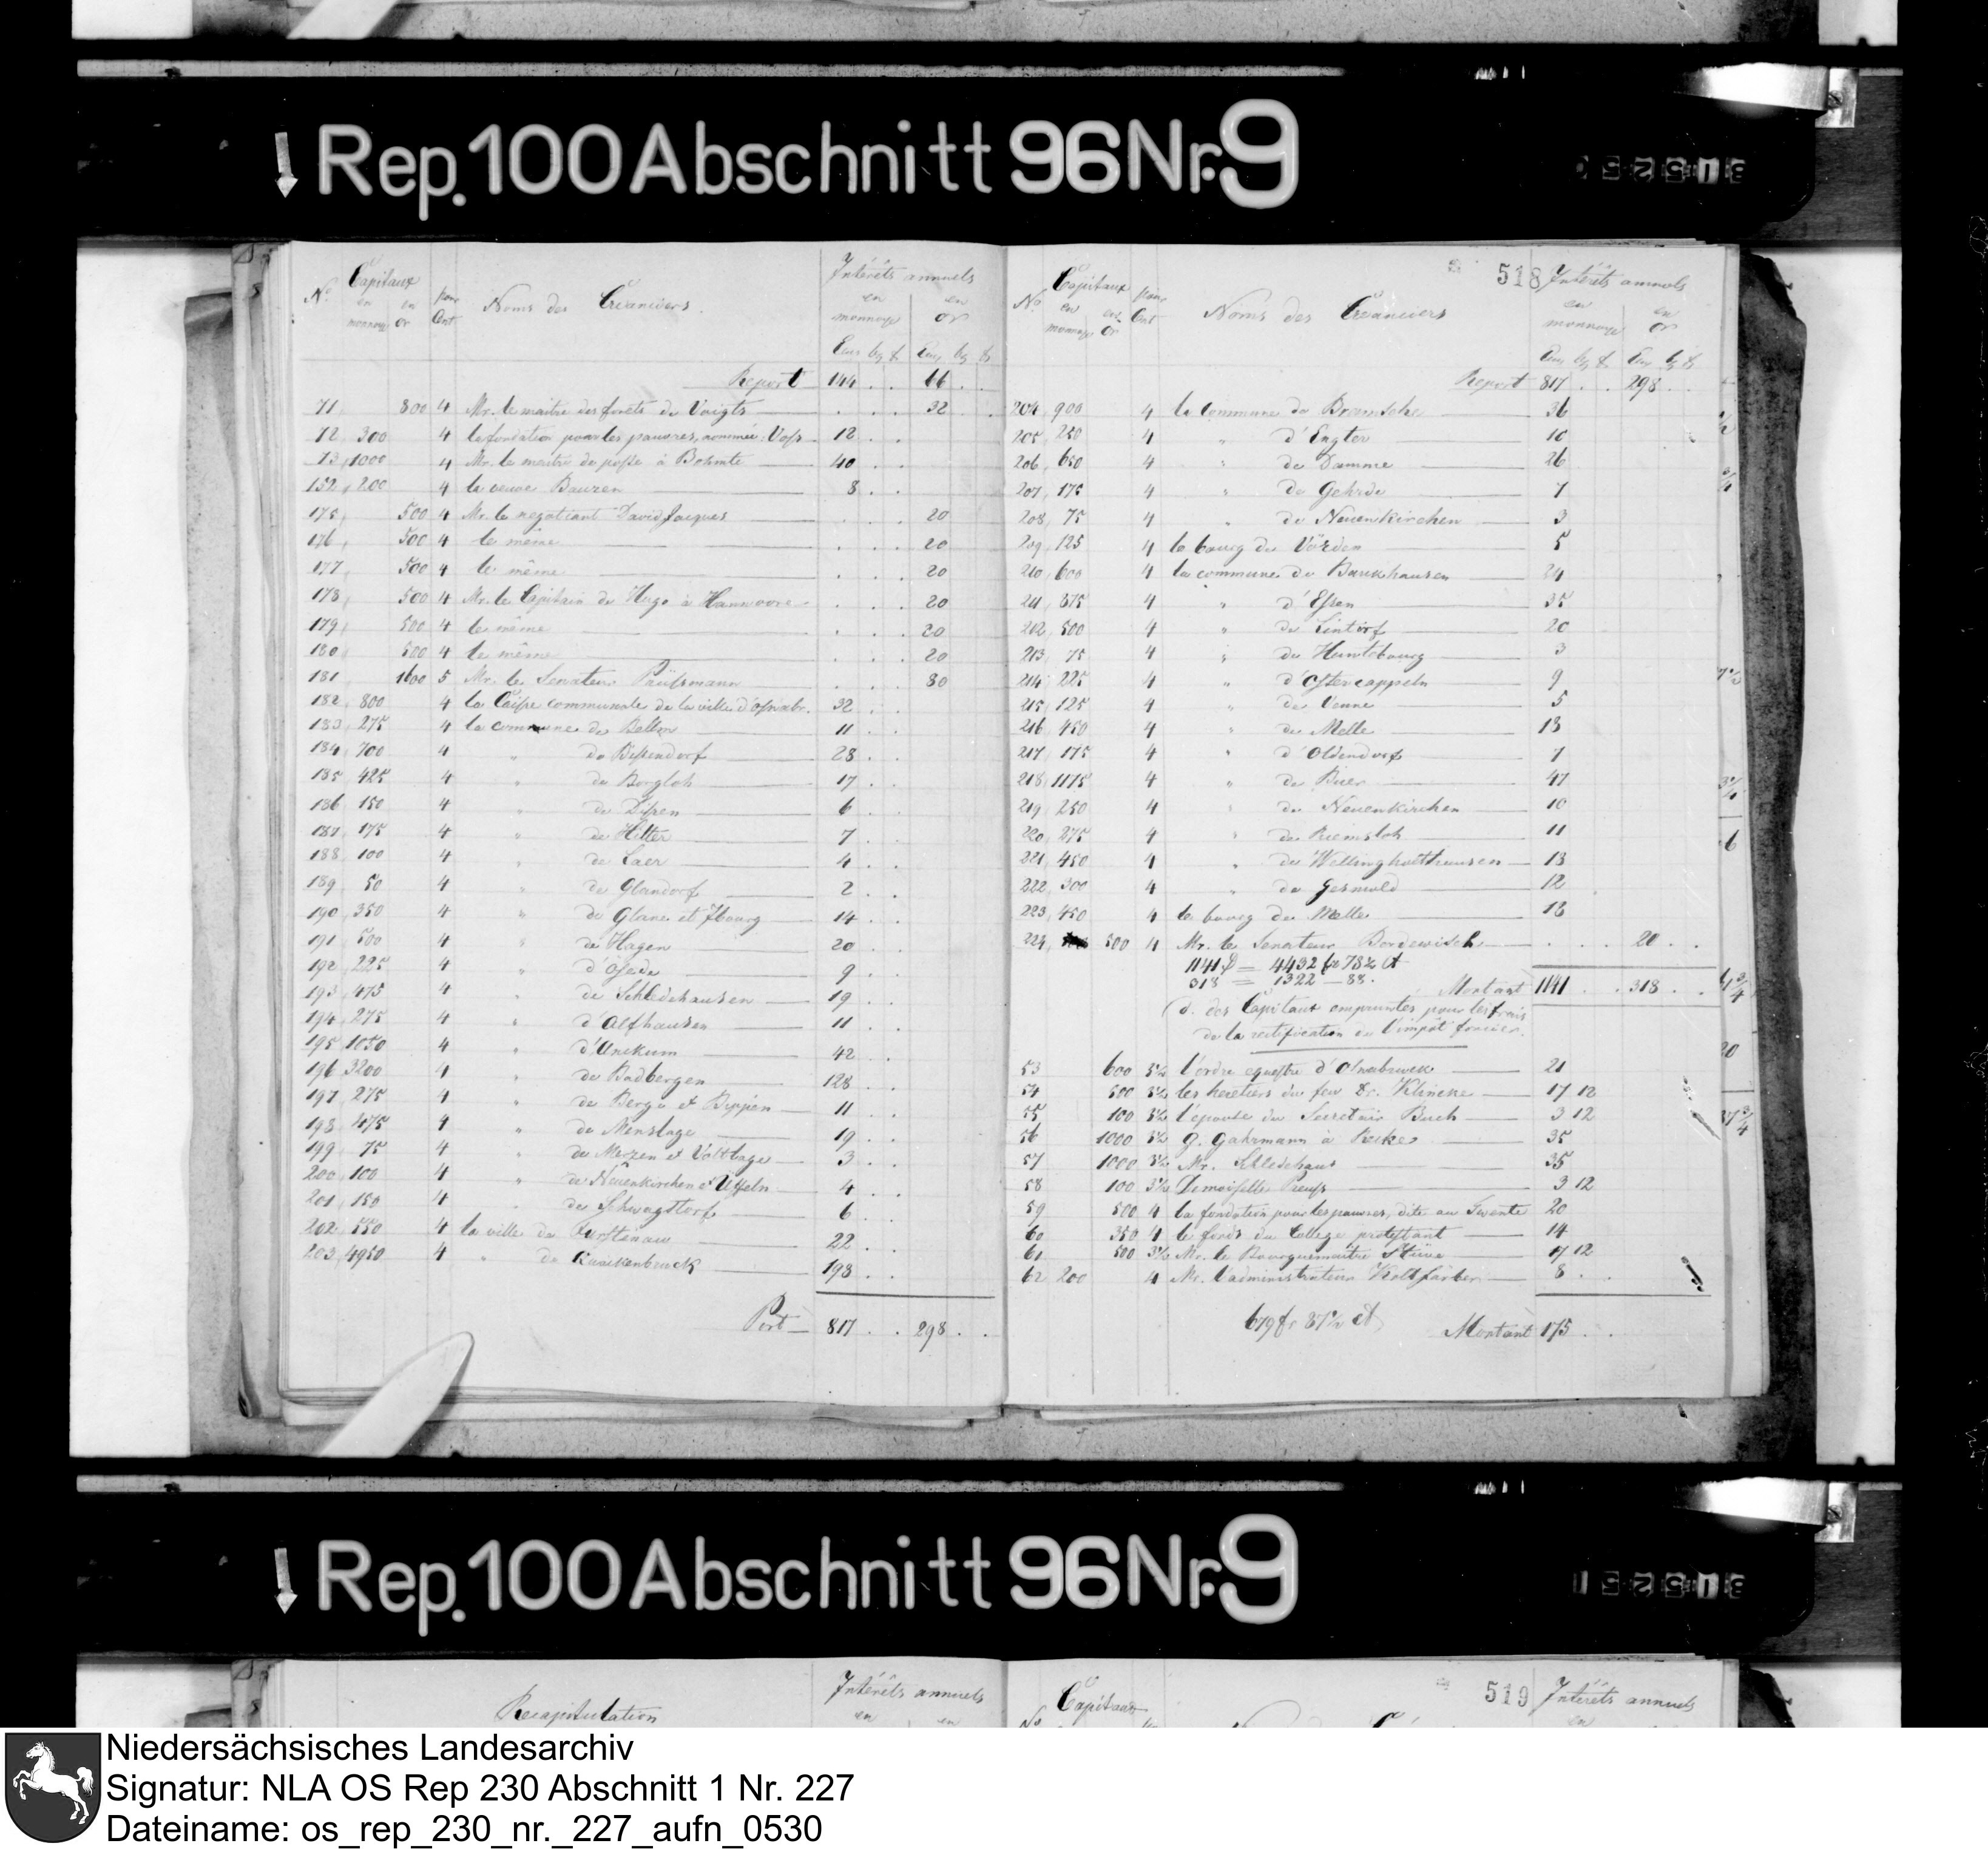 Rep. 100 Abschnitt 96 Nr. 9
No. Capitaux en monnoye en or pour Cent Noms des Creanciers Intérêts annuels en monnoye en or
Report 144 . . 66 . .
71, 800 4 Mr. le maitre des forêts de Voigts . . . 32 .
72, 300 4 la fondation pour les pauvres, nommée Voss 12 . .
73, 1000 4 Mr. le maitre de poste à Bohmte 40 . .
152, 200 4 la veuve Bauren 8 . .
175, 500 4 Mr. le negotiant David Jacques . . . 20
176, 500 4 le même . . . 20
177, 500 4 le même . . . 20
178, 500 4 Mr. le Capitain de Hugo à Hannovre . . . 20
179, 500 4 le même . . . 20
180, 500 4 le même . . . 20
181, 1600 5 Mr. le Senateur . . . 80
182, 800 4 la Caisse communale de la ville d'Osnabr. 32 . .
183, 275 4 la commune de Bellm 11 . .
184, 700 4 " de Bissendorf 28 . .
185, 425 4 " de Borgloh 17 . .
186, 150 4 " de Dissen 6 . .
187, 175 4 " de Hilter 7 . .
188, 100 4 " de Laer 4 . .
189, 50 4 " de Glandorf 2 . .
190, 350 4 " de Glane et Ibourg 14 . .
191, 500 4 " de Hagen 20 . .
192, 225 4 " d'Oesede 9 . .
193, 475 4 " de Schledehausen 19 . .
194, 275 4 " d'Alfhausen 11 . .
195, 1050 4 " d'Ankum 42 . .
196, 3200 4 " de Badbergen 128 . .
197, 275 4 " de Berge et Bippen 11 . .
198, 475 4 " de Menslage 19 . .
199, 75 4 " de Merzen et Voltlage 3 . .
200, 100 4 " de Neuenkirchen et Uffeln 4 . .
201, 150 4 " de Schwagstorf 6 . .
202, 550 4 la ville de Furstenau 22 . .
203, 4950 4 " de Quackenbruck 198 . .
Port 817 . . 298 . .
518
No. Capitaux en monnoye en or pour Cent Noms des Creanciers Intérêts annuels en monnoye en or
Report 817 . . 298 . .
204, 900 4 la Commune de Bramsche 36
205, 250 4 " d'Engter 10
206, 650 4 " de Damme 26
207, 175 4 " de Gehrde 7
208, 75 4 " de Neuenkirchen 3
209, 125 4 le bourg de Vörden 5
210, 600 4 la commune de Barkhausen 24
211, 875 4 " d'Essen 35
212, 500 4 " de Lintorf 20
213, 75 4 " de Huntebourg 3
214, 225 4 " d'Ostercappeln 9
215, 125 4 " de Venne 5
216, 450 4 " de Melle 18
217, 175 4 " d'Oldendorf 7
218, 1175 4 " de Buer 47
219, 250 4 " de Neuenkirchen 10
220, 275 4 " de Riemsloh 11
221, 450 4 " de Wellingholthausen 18
222, 300 4 " de Gesmold 12
223, 450 4 le bourg de Melle 18
224, 500 4 Mr. le Senateur Bordewisch . . . 20 . .
1141 = 4432 fr 78½ ct
318 = 1322 — 88.
Montant 1141 . . 318 . .
d. des Capitaux empruntes pour les frais
de la rectification de l'impôt foncier.
53 600 3½ l'ordre equestre d'Osnabruck 21
54 500 3½ les heretiers du feu Dr. Klincke 17 12
55 100 3½ l'epouse du Secretair Buch 3 12
56 1000 3½ G. Gahrmann à 35
57 1000 3½ Mr. Schledehaus 35
58 100 3½ Demoiselle Preuss 3 12
59 500 4 la fondation pour les pauvres, dite au Twente 20
60 350 4 le fonds du College protestant 14
61 500 3½ Mr. le Bourguemaitre Stüve 17 12
62, 200 4 Mr. l'administrateur 8 . .
679 fr 87½ ct Montant 175 . .
Rep. 100 Abschnitt 96 Nr. 9
Recapitulation Intérêts annuels
519
Capitaux Intérêts annuels
Niedersächsisches Landesarchiv
Signatur: NLA OS Rep 230 Abschnitt 1 Nr. 227
Dateiname: os_rep_230_nr._227_aufn_0530